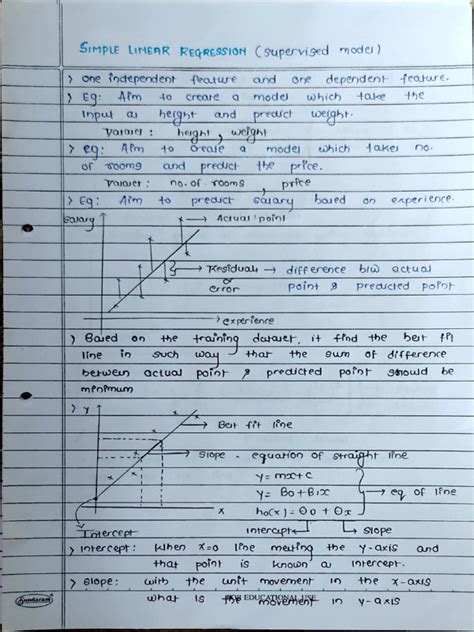 SIMPLE LINEAR REGRESSION (supervised model)
> one independent feature and one dependent feature.
> Eg: Aim to create a model which take the
input as height and predict weight.
Dataset : height, weight
> eg: Aim to create a model which takes no.
of rooms and predict the price.
Dataset : no. of rooms, price
> Eg: Aim to predict salary based on experience.
Salary
Actual point
Residuals → difference b/w actual
or
error
point & predicted point
experience
> Based on the training dataset, it find the best fit
line in such way that the sum of difference
between actual point & predicted point should be
minimum
> y
Best fit line
Slope - equation of straight line
y = mx+c
y = B0 + B1x → eq of line
x
hθ(x) = θ0 + θx
Intercept
intercept
slope
> intercept: When x=0 line meeting the y-axis and
that point is known as intercept.
> slope: with the unit movement in the x-axis
what is the movement in y-axis
Sundaram
FOR EDUCATIONAL USE